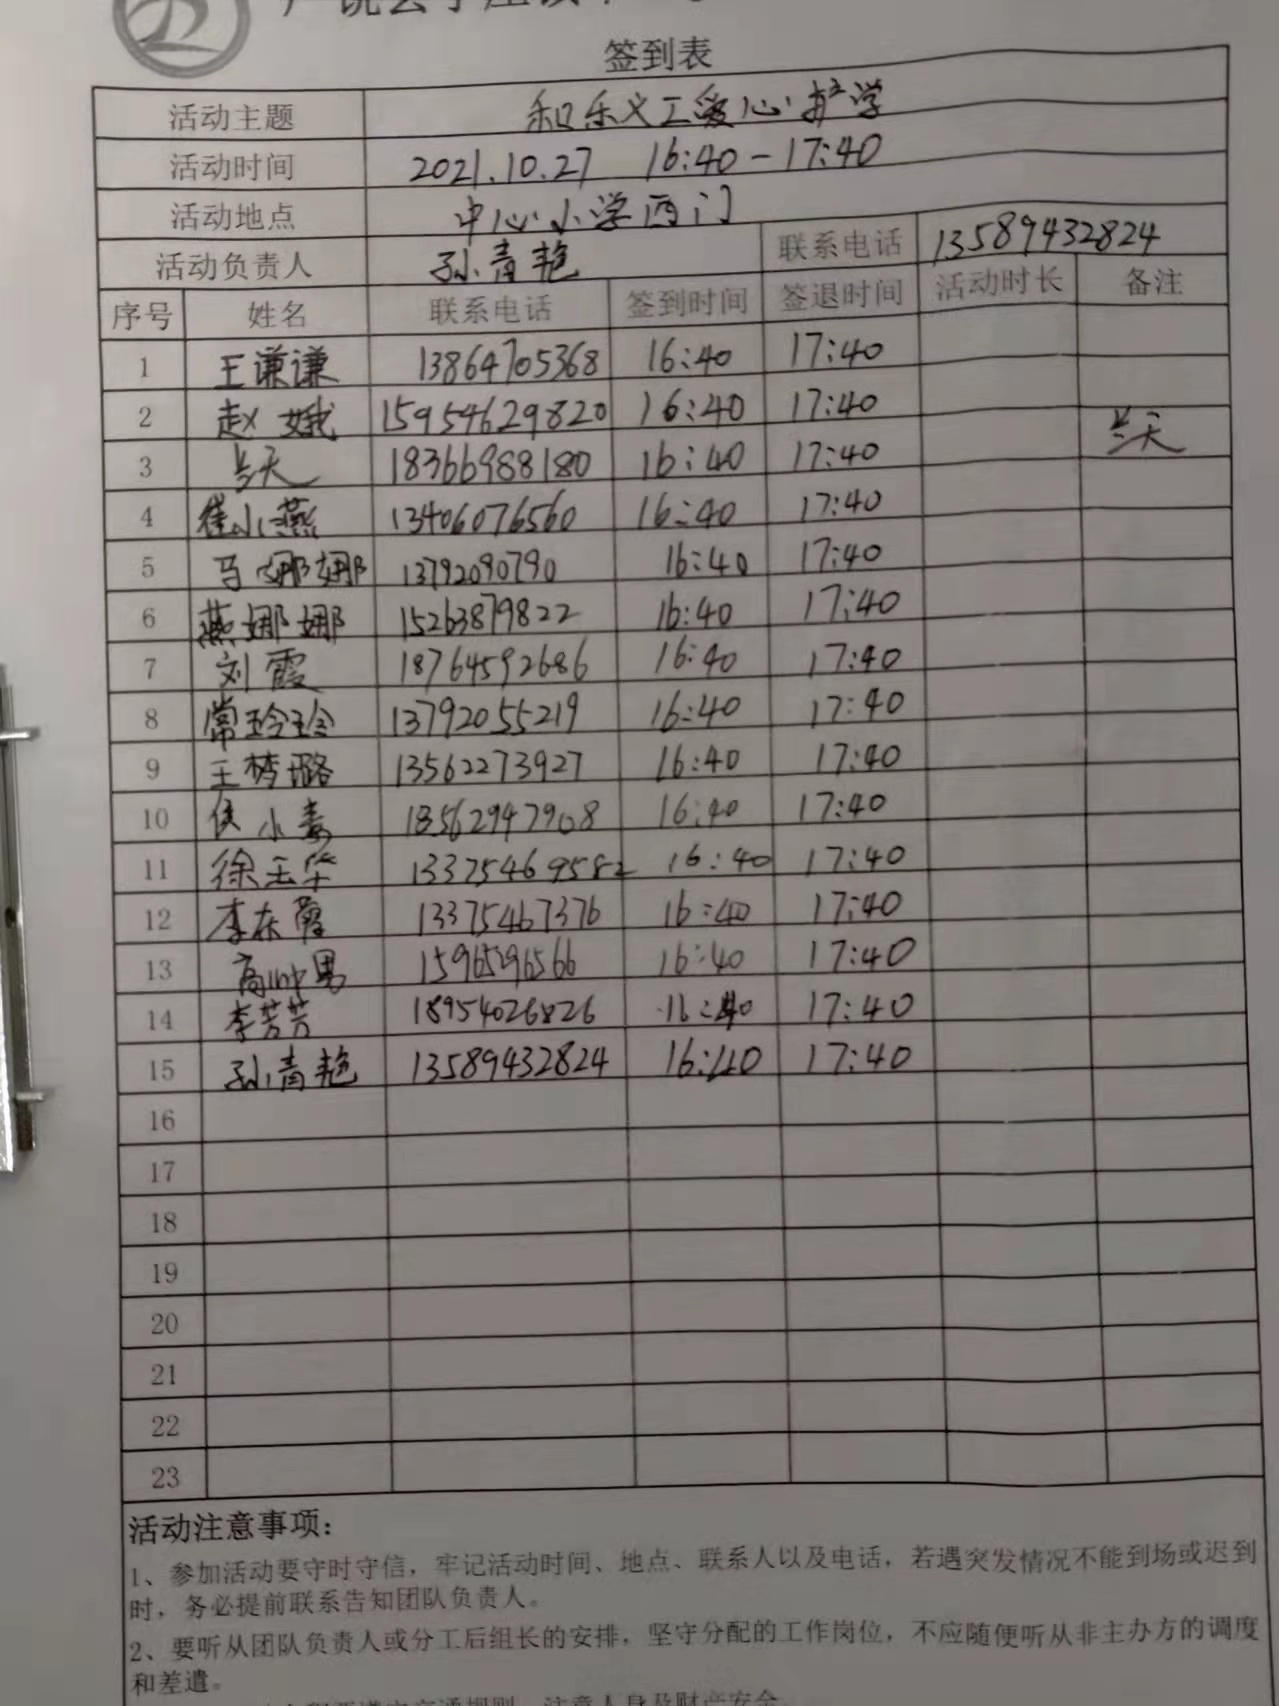 签到表
活动主题 和乐义工爱心护学
活动时间 2021.10.27 16:40-17:40
活动地点 中心小学西门
活动负责人 孙青艳 联系电话 13589432824
序号 姓名 联系电话 签到时间 签退时间 活动时长 备注
1 王谦谦 13864705368 16:40 17:40
2 赵娥 15954629820 16:40 17:40
3 兰天 18366988180 16:40 17:40 兰天
4 崔小燕 13406076560 16:40 17:40
5 马娜娜 13792080790 16:40 17:40
6 燕娜娜 15263879822 16:40 17:40
7 刘霞 18764592686 16:40 17:40
8 常玲玲 13792055219 16:40 17:40
9 王梦璐 13562273927 16:40 17:40
10 侯小 18562947908 16:40 17:40
11 徐玉华 13375469582 16:40 17:40
12 李东 13375467376 16:40 17:40
13 高帅男 15965296566 16:40 17:40
14 李芳芳 18954026826 16:40 17:40
15 孙青艳 13589432824 16:40 17:40
16
17
18
19
20
21
22
23
活动注意事项：
1、参加活动要守时守信，牢记活动时间、地点、联系人以及电话，若遇突发情况不能到场或迟到
时，务必提前联系告知团队负责人。
2、要听从团队负责人或分工后组长的安排，坚守分配的工作岗位，不应随便听从非主办方的调度
和差遣。